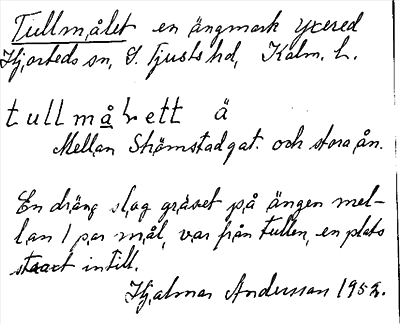 Tullmålet en ängmark yxered
Hjorteds sn, S. Tjusts hd, Kalm. L.
tullmålett ä
Mellan Strömstadgat. och stora ån.
En dräng slog gräset på ängen mel-
lan 1 par mål, var från tullen, en plats
straxt intill.
Hjalmar Andersson 1952.